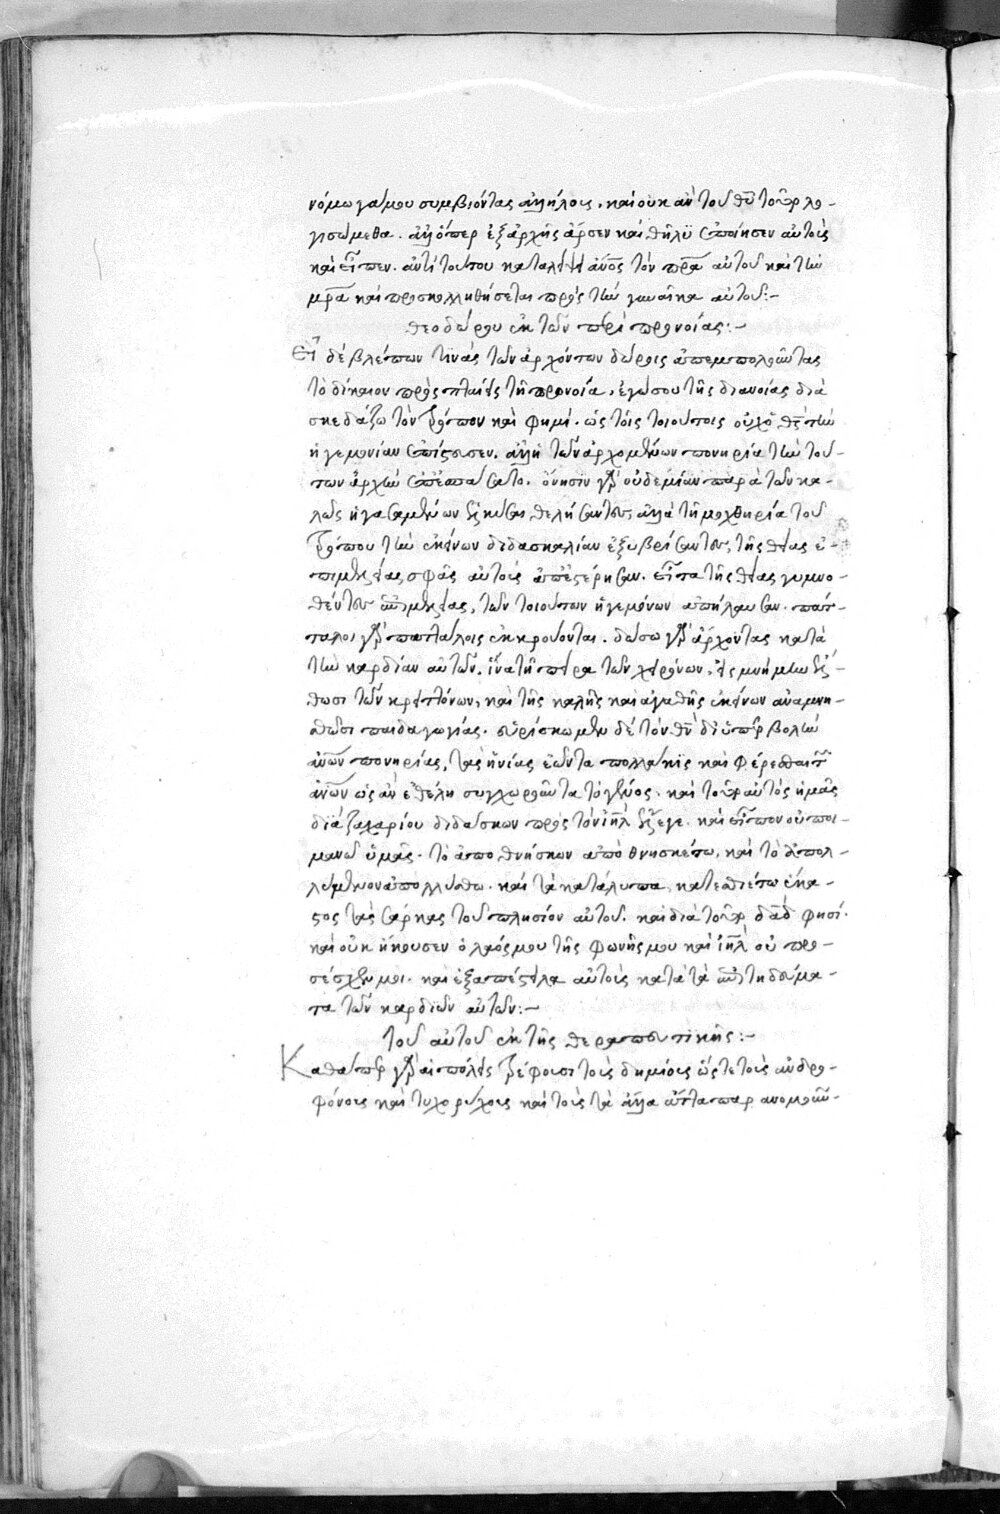 νόμω γάμου συμβιόντας ἀλλήλοις, καὶ οὐκ ἂν τοῦ θῦ τοῦτο λο-
γισώμεθα. ἀλλ' ὅπερ ἐξ ἀρχῆς ἄρσεν καὶ θῆλϋ ἐποίησεν αὐτοὺς
καὶ εἶπεν. ἀντὶ τούτου καταλείψει ἄνος τὸν πρᾶ αὐτοῦ καὶ τὴν
μρᾶ καὶ προσκολληθήσεται πρὸς τὴν γυναῖκα αὐτοῦ:-
θεοδώρου ἐκ τῶν περὶ προνοίας:-
Εἰ δὲ βλέπων τϊνὰς τῶν ἀρχόντων δώροις ἀπεμπολοῦντας
τὸ δίκαιον πρὸς πταίεις τῆ προνοία, ἐγώ σου τῆς διανοίας δια
σκεδάζω τὸν τρόπον καὶ φημί. ὡς τοῖς τοιούτοις οὐχ ὁ θς τὴν
ἡγεμονίαν ἐπίστευσεν. ἀλλ' ἡ τῶν ἀρχομένων πονηρία τὴν τού-
των ἀρχὴν ἐπεσπάσατο. ὄνησϊν γὰρ οὐδεμίαν παρὰ τῶν κα-
λῶς ἡγησαμένων δέξασθαι θελήσαντες, ἀλλὰ τῆ μοχθηρία τοῦ
τρόπου τὴν ἐκείνων διδασκαλίαν ἐξυβρίσαντες, τῆς θείας ἐ-
πιμελείας σφᾶς αὐτοὺς ἀπεστέρησαν. εἶτα τῆς θείας γυμνω-
θέντες ἐπιμελείας, τῶν τοιούτων ἡγεμόνων ἀπήλαυσαν. πάτ-
ταλοι γὰρ παττάλοις ἐκκρούονται. δώσω γὰρ ἄρχοντας κατὰ
τὴν καρδίαν αὐτῶν. ἵνα τῆ πείρα τῶν χειρόνων, εἰς μνήμην ἔλ-
θωσι τῶν κρειττόνων, καὶ τῆς καλῆς καὶ ἀγαθῆς ἐκείνων ἀναμνη-
σθῶσι παιδαγωγίας. εὑρίσκωμεν δὲ τὸν θν δι' ὑπερβολὴν
ἀνων πονηρίας, τὰς ἡνίας ἐῶντα πολλάκις καὶ φέρεσθαι
ἀνων ὡς ἂν ἐθέλη συγχωροῦντα τὸ γένος. καὶ τοῦτο αὐτὸς ἡμᾶς
διὰ ζαχαρίου διδάσκων πρὸς τὸν ιηλ ἔλεγε. καὶ εἶπον οὐ ποι-
μανῶ ὑμᾶς. τὸ ἀποθνήσκων ἀποθνησκέτω, καὶ τὸ ἀπολ-
λύμενον ἀπολλύσθω. καὶ τὰ κατάλοιπα, κατεσθιέτω ἕκα-
στος τὰς σάρκας τοῦ πλησίον αὐτοῦ. καὶ διὰ τοῦ δαδ φησί.
καὶ οὐκ ἤκουσεν ὁ λαός μου τῆς φωνῆς μου καὶ ιηλ οὐ προ-
σέσχεν μοι. καὶ ἐξαπέστειλα αὐτοὺς κατὰ τὰ ἐπιτηδεύμα-
τα τῶν καρδιῶν αὐτῶν:-
τοῦ αὐτοῦ ἐκ τῆς θεραπευτικῆς:-
Καθάπερ γὰρ αἱ πόλεις τρέφουσι τοὺς δημίους ὥστε τοὺς ἀνδρο-
φόνους καὶ τυχορύχους καὶ τοὺς τὰ ἄλλα ἅττα παρανομοῦν-